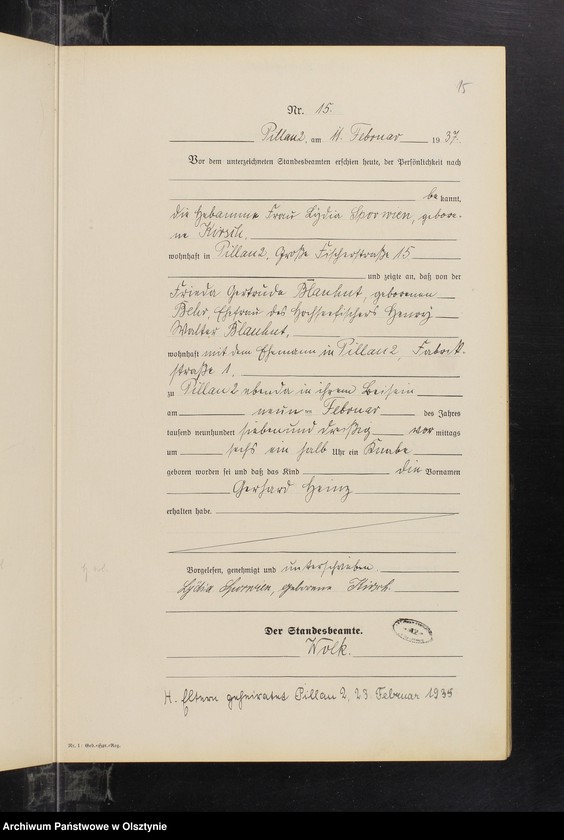 15
Nr. 15.
Pillau 2, am 11. Februar 1937.
Vor dem unterzeichneten Standesbeamten erschien heute, der Persönlichkeit nach
bekannt,
die Hebamme Frau Lydia gebore-
ne Kirsch,
wohnhaft in Pillau 2, Große Fischerstraße 15
und zeigte an, daß von der
Frieda Gertrude Blankut, geborenen
Behr, Ehefrau des Hochseefischers Henry
Walter Blankut,
wohnhaft mit dem Ehemann in Pillau 2, Fabrik-
straße 1,
zu Pillau 2 ebenda in ihrem Beisein
am neunten Februar des Jahres
tausend neunhundert siebenunddreißig vormittags
um sechs ein halb Uhr ein Knabe
geboren worden sei und daß das Kind die Vornamen
Gerhard Heinz
erhalten habe.
Vorgelesen, genehmigt und unterschrieben
Lydia geborene Kirsch.
Der Standesbeamte.
Wolk.
H. Eltern geheiratet Pillau 2, 23. Februar 1935
Archiwum Państwowe w Olsztynie